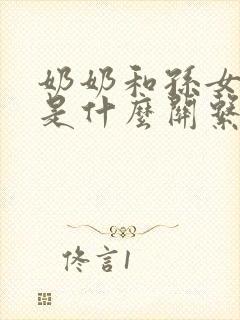 奶奶和孫女
是什麼關繫
佟言1